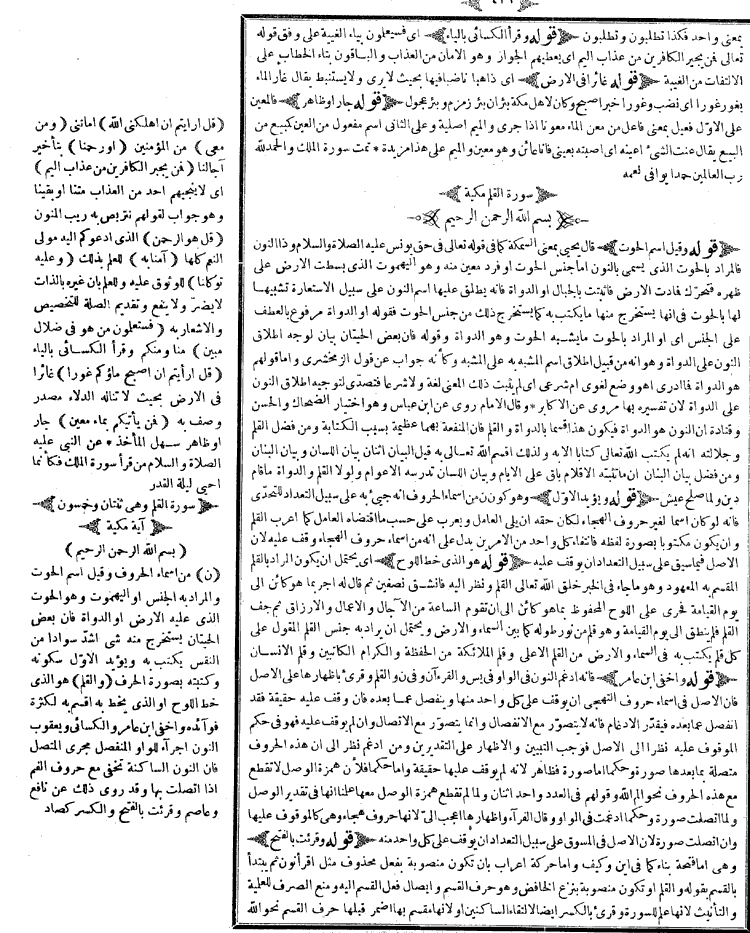 بمعنى واحد فكذا تطلبون وتطلبون ﴿ قوله وقرأ الكسائى بالياء ﴾ اى فسيعلمون بياء الغيبة على وفق قوله
تعالى فمن يجير الكافرين من عذاب اليم اى يعطيهم الجواز وهو الامان من العذاب والباقون بتاء الخطاب على
الالتفات من الغيبة ﴿ قوله غائرا فى الارض ﴾ اى ذاهبا ناضبا فيها بحيث لا يرى ولا يستنبط يقال غار الماء
يغور غورا اى نضب وغورا خبر اصبح وكان لاهل مكة بئران بئر زمزم و بئر ﴿ قوله جار او ظاهر ﴾ فالمعين
على الاول فعيل بمعنى فاعل من معن الماء معونا اذا جرى والميم اصلية وعلى الثانى اسم مفعول من العين كمبيع من
البيع يقال عنت الشئ اعينه اى اصبته بعينى فانا عائن وهو معين والميم على هذا مزيدة * تمت سورة الملك والحمد لله
رب العالمين حمدا يوافى نعمه
﴿ سورة القلم مكية ﴾
﴿ بسم الله الرحمن الرحيم ﴾
﴿ قوله وقيل اسم الحوت ﴾ قال يحيى بمعنى السمكة كما فى قوله تعالى فى حق يونس عليه الصلاة والسلام وذا النون
فالمراد بالحوت الذى يسمى بالنون اما جنس الحوت او فرد معين منه وهو اليهموت الذى بسطت الارض على
ظهره فتحرك فمادت الارض فاثبتت بالجبال او الدواة فانه يطلق عليها اسم النون على سبيل الاستعارة تشبيها
لها بالحوت فى انها يستخرج منها ما يكتب به كما يستخرج ذلك من جنس الحوت فقوله او الدواة مرفوع بالعطف
على الجنس اى او المراد بالحوت ما يشبه الحوت وهو الدواة وقوله فان بعض الحيتان بيان لوجه اطلاق
النون على الدواة وهو انه من قبيل اطلاق اسم المشبه به على المشبه وكأنه جواب عن قول الزمخشرى واما قولهم
هو الدواة فما ادرى اهو وضع لغوى ام شرعى اى لم يثبت ذلك المعنى لغة ولا شرعا فتصدى لتوجيه اطلاق النون
على الدواة لان تفسيره بها مروى عن الاكابر * وقال الامام روى عن ابن عباس وهو اختيار الضحاك والحسن
وقتادة ان النون هو الدواة فيكون هذا قسما بالدواة والقلم فان المنفعة بهما عظيمة بسبب الكتابة ومن فضل القلم
وجلالته انه لم يكتب الله تعالى كتابا الا به ولذلك اقسم الله تعالى به قيل البيان اثنان بيان اللسان وبيان البنان
ومن فضل بيان البنان ان ما تثبته الاقلام باق على الايام وبيان اللسان تدرسه الاعوام ولولا القلم والدواة ماقام
دين ولا صلح عيش ﴿ قوله ويؤيد الاول ﴾ وهو كون ن من اسماء الحروف انه جيئ به على سبيل التعداد للتحدى
فانه لو كان اسما لغير حروف التهجاء لكان حقه ان يلى العامل و يعرب على حسب ما اقتضاه العامل كما اعرب القلم
وان يكون مكتوبا بصورة لفظه فانتفاء كل واحد من الامرين يدل على انه من اسماء حروف التهجاء وقف عليه لان
الاصل فيما سبق على سبيل التعداد ان يوقف عليه ﴿ قوله هو الذى خط اللوح ﴾ اى يحتمل ان يكون المراد بالقلم
المقسم به المعهود وهو ما جاء فى الخبر خلق الله تعالى القلم و نظر اليه فانشق نصفين ثم قال له اجر بما هو كائن الى
يوم القيامة فجرى على اللوح المحفوظ بما هو كائن الى ان تقوم الساعة من الآجال والاعمال والارزاق ثم جف
القلم فلم ينطق الى يوم القيامة وهو قلم من نور طوله كما بين السماء والارض ويحتمل ان يراد به جنس القلم المقول على
كل قلم يكتب به فى السماء والارض من القلم الاعلى وقلم الملائكة من الحفظة والكرام الكاتبين وقلم الانسان
﴿ قوله واخفى ابن عامر ﴾ فانه ادغم النون فى الواو فى يس والقرءآن وفى ن والقلم وقرئ باظهارها على الاصل
فان الاصل فى اسماء حروف التهجى ان يوقف على كل واحد منها وينفصل عما بعده فان وقف عليه حقيقة فقد
انفصل عما بعده فيقدر الادغام فانه لا يتصور مع الانفصال وانما يتصور مع الاتصال وان لم يوقف عليه فهو فى حكم
الموقوف عليه نظرا الى الاصل فوجب التبيين والاظهار على التقديرين ومن ادغم نظر الى ان هذه الحروف
متصلة بما بعدها صورة وحكما اما صورة فظاهر لانه لم يوقف عليها حقيقة واما حكما فلأن همزة الوصل لا تقطع
مع هذه الحروف نحو الم الله وقولهم فى العدد واحد اثنان ولما لم تقطع همزة الوصل معها علمنا انها فى تقدير الوصل
ولما اتصلت صورة وحكما ادغمت فى الواو وقال الفرآء واظهارها اعجب الى لانها حروف هجاء وهى كالموقوف عليها
وان اتصلت صورة لان الاصل فى المسوق على سبيل التعداد ان يوقف على كل واحد منه ﴿ قوله وقرئت بالفتح ﴾
وهى اما فتحة بناء كما فى اين وكيف واما حركة اعراب بان تكون منصوبة بفعل محذوف مثل اقرأ نون ثم يبتدأ
بالقسم بقوله والقلم او تكون منصوبة بنزع الخافض وهو حرف القسم وايصال فعل القسم اليه ومنع الصرف للعلمية
والتأنيث لانها علم للسورة وقرئ بالكسر ايضا لالتقاء الساكنين او لانها مقسم بها اضمر قبلها حرف القسم نحو الله
( قل ارايتم ان اهلكنى الله ) اماتنى ( ومن
معى ) من المؤمنين ( او رحمنا ) بتأخير
آجالنا ( فمن يجير الكافرين من عذاب اليم )
اى لا ينجيهم احد من العذاب متنا او بقينا
وهو جواب لقولهم نتربص به ريب المنون
( قل هو الرحمن ) الذى ادعوكم اليه مولى
النعم كلها ( آمنا به ) للعلم بذلك ( وعليه
توكلنا ) للوثوق عليه وللعلم بان غيره بالذات
لا يضر ولا ينفع وتقديم الصلة للتخصيص
والاشعار به ( فستعلمون من هو فى ضلال
مبين ) منا ومنكم وقرأ الكسائى بالياء
( قل ارأيتم ان اصبح ماؤكم غورا ) غائرا
فى الارض بحيث لا تناله الدلاء مصدر
وصف به ( فمن يأتيكم بماء معين ) جار
او ظاهر سهل المأخذ * عن النبى عليه
الصلاة والسلام من قرأ سورة الملك فكأنما
احيى ليلة القدر
﴿ سورة القلم وهى ثنتان وخمسون ﴾
﴿ آية مكية ﴾
( بسم الله الرحمن الرحيم )
( ن ) من اسماء الحروف وقيل اسم الحوت
والمراد به الجنس او اليهموت وهو الحوت
الذى عليه الارض او الدواة فان بعض
الحيتان يستخرج منه شئ اشد سوادا من
النقس يكتب به ويؤيد الاول سكونه
وكتبته بصورة الحرف ( والقلم ) هو الذى
خط اللوح او الذى يخط به اقسم به لكثرة
فوآئده واخفى ابن عامر والكسائى ويعقوب
النون اجرآء للواو المنفصل مجرى المتصل
فان النون الساكنة تخفى مع حروف الفم
اذا اتصلت بها وقد روى ذلك عن نافع
وعاصم وقرئت بالفتح والكسر كصاد